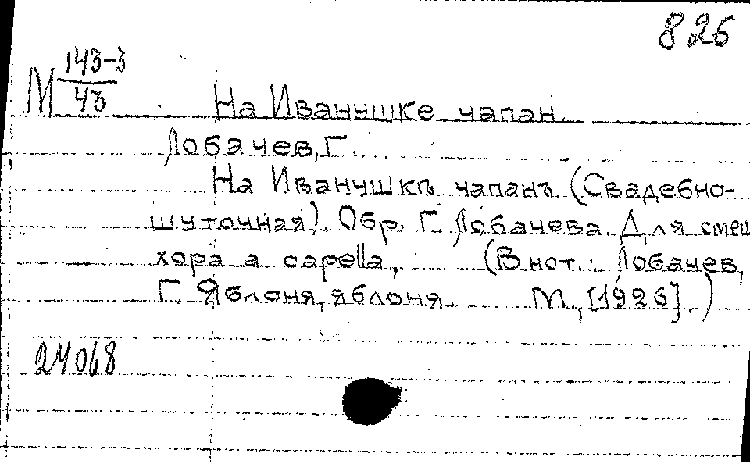 826
М 143-3
43
На Иванушке чапан.
Лобачев, Г.
На Иванушкъ чапанъ (Свадебно-
шуточная). Обр. Г. Лобачева. Для смеш
хора a capella,. (В нот.: Лобачев,
Г. Яблоня, яблоня. М., [1926].)
24068